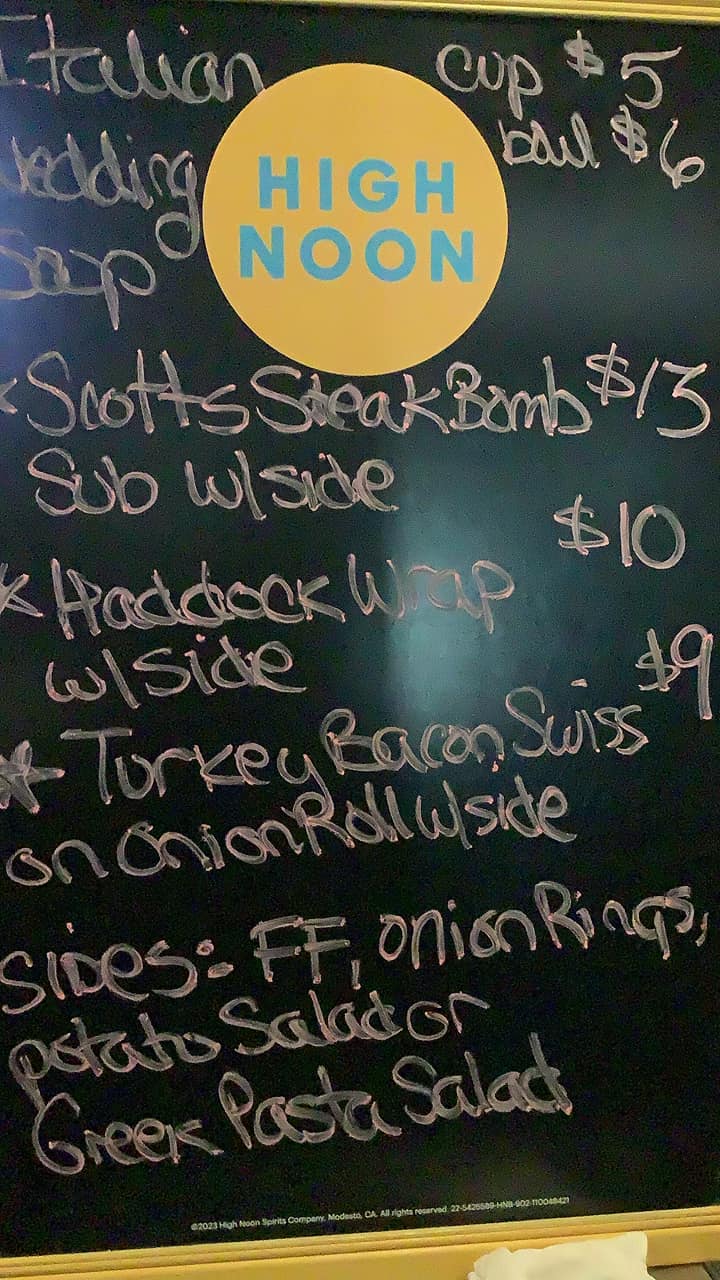 Italian cup $5
Wedding bowl $6
Soup
HIGH
NOON
* Scotts Steak Bomb $13
Sub w/side
$10
* Haddock Wrap
w/side
$9
* Turkey Bacon Swiss
on Onion Roll w/side
SIDES: FF, onion Rings,
potato Salad or
Greek Pasta Salad
©2023 High Noon Spirits Company, Modesto, CA. All rights reserved. 22-5426589-HNB-902-110048421